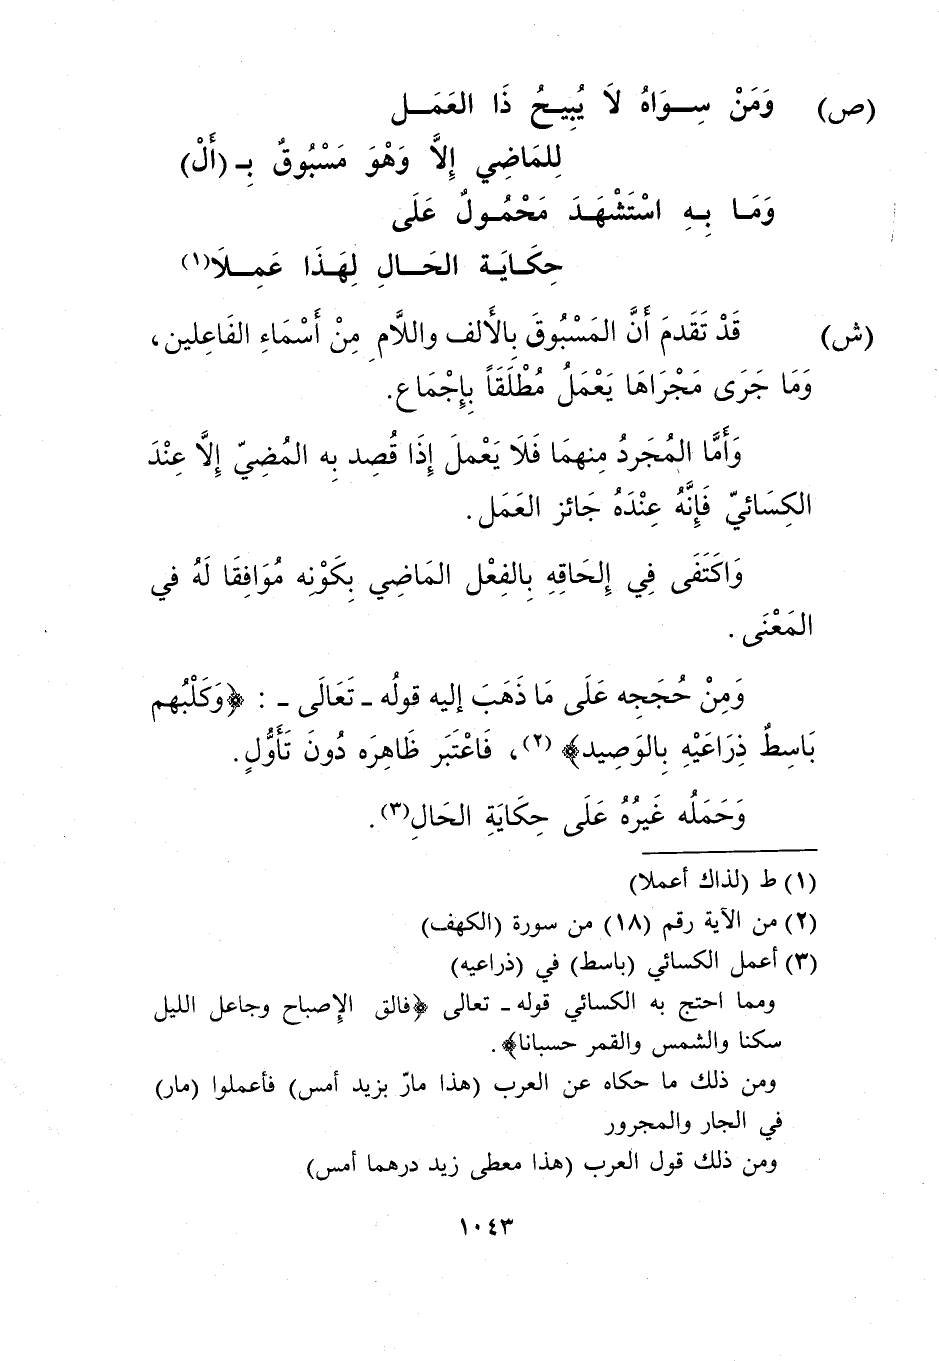 (ص) وَمَنْ سِـوَاهُ لَا يُبِيحُ ذَا العَمَـل
لِلمَاضِي إِلاَّ وَهْوَ مَسْبُوقٌ بِـ (أَلْ)
وَمَـا بِـهِ اسْتَشْهَـدَ مَحْمُـولٌ عَلَى
حِكَـايَـة الحَـالِ لِهَـذَا عَمِـلَا(١)
(ش) قَدْ تَقَدمَ أَنَّ المَسْبُوقَ بِالأَلف واللَّامِ مِنْ أَسْمَاءِ الفَاعِلين،
وَمَا جَرَى مَجْرَاهَا يَعْمَلُ مُطْلَقَاً بِإِجْمَاع.
وَأَمَّا المُجَردُ مِنهمَا فَلَا يَعْملَ إِذَا قُصِد به المُضِيّ إِلَّا عِنْدَ
الكِسَائيّ فَإِنَّهُ عِنْدَهُ جَائز العَمَل.
وَاكَتَفَى فِي إِلحَاقِهِ بِالفِعْل المَاضِي بِكَوْنِه مُوَافِقَا لَهُ في
المَعْنَى.
وَمِنْ حُجَجِه عَلَى مَا ذَهَبَ إليه قولُه ـ تَعَالَى ـ : ﴿وَكَلْبُهم
بَاسِطٌ ذِرَاعَيْهِ بِالوَصِيد﴾(٢)، فَاعْتَبَر ظَاهِرَه دُونَ تَأَوُّلٍ.
وَحَمَلُه غَيرُهُ عَلَى حِكَايَةِ الحَالِ(٣).
(١) ط (لذاك أعملا)
(٢) من الآية رقم (١٨) من سورة (الكهف)
(٣) أعمل الكسائي (باسط) في (ذراعيه)
ومما احتج به الكسائي قوله ـ تعالى ﴿فالق الإصباح وجاعل الليل
سكنا والشمس والقمر حسبانا﴾.
ومن ذلك ما حكاه عن العرب (هذا مارّ بزيد أمس) فأعملوا (مار)
في الجار والمجرور
ومن ذلك قول العرب (هذا معطى زيد درهما أمس)
١٠٤٣